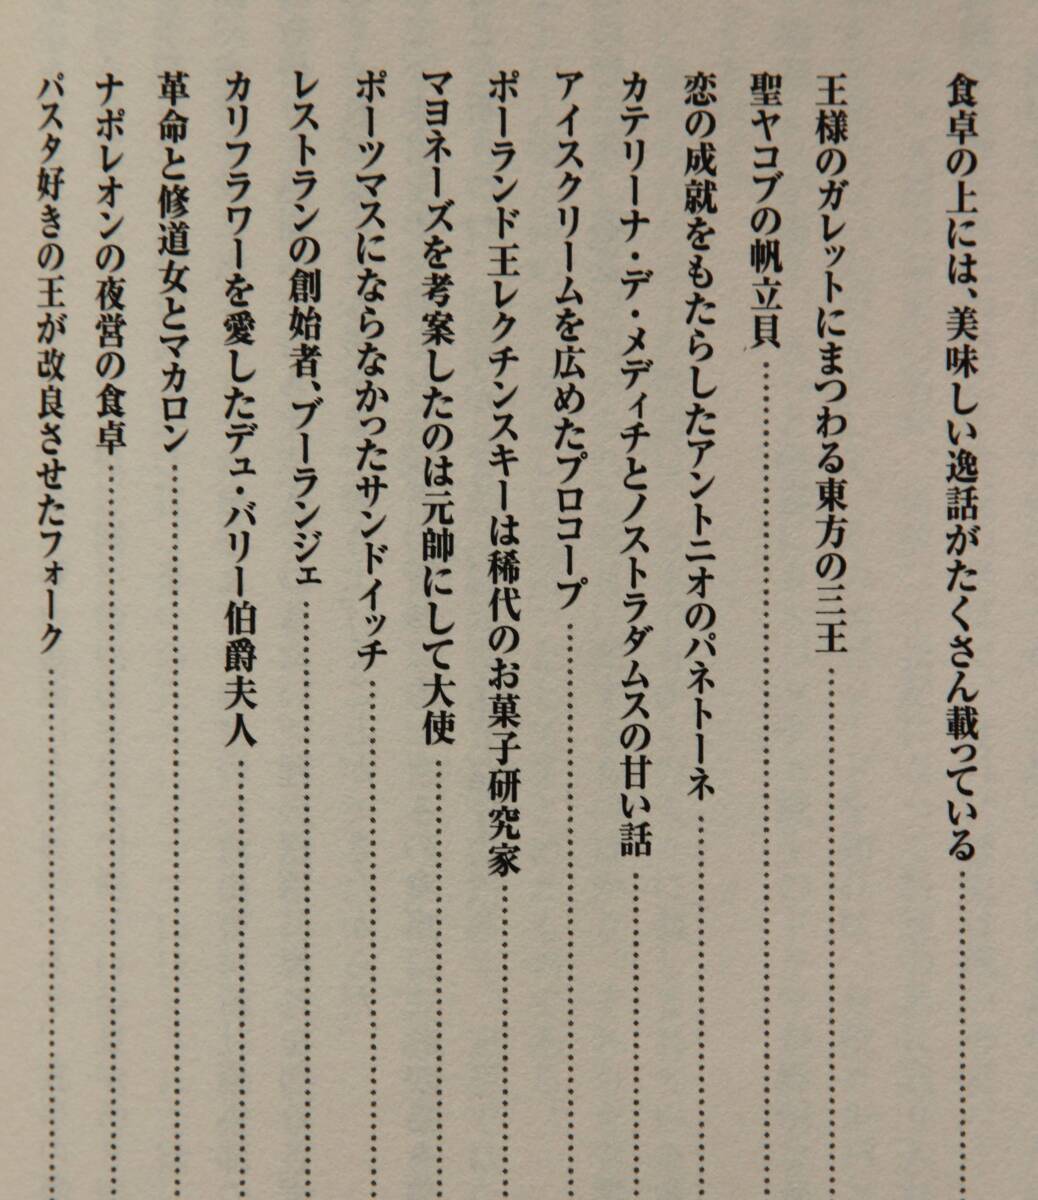 食卓の上には、美味しい逸話がたくさん載っている
王様のガレットにまつわる東方の三王
聖ヤコブの帆立貝
恋の成就をもたらしたアントニオのパネトーネ
カテリーナ・デ・メディチとノストラダムスの甘い話
アイスクリームを広めたプロコープ
ポーランド王レクチンスキーは稀代のお菓子研究家
マヨネーズを考案したのは元帥にして大使
ポーツマスにならなかったサンドイッチ
レストランの創始者、ブーランジェ
カリフラワーを愛したデュ・バリー伯爵夫人
革命と修道女とマカロン
ナポレオンの夜営の食卓
パスタ好きの王が改良させたフォーク